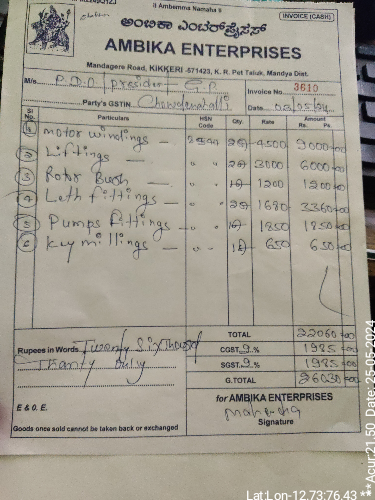 || Ambemma Namaha ||
INVOICE (CASH)
ಅಂಬಿಕಾ ಎಂಟರ್‌ಪ್ರೈಸಸ್
AMBIKA ENTERPRISES
Mandagere Road, KIKKERI -571423, K. R. Pet Taluk, Mandya Dist.
M/s P.D.O / president G.P Invoice No. 3610
Party's GSTIN Date
Sl No. Particulars HSN Code Qty. Rate Amount Rs. Ps.
1 motor windings — 2 4500 9000=00
2 Liftings — " " 2 3000 6000=00
3 Rotor Bush — " " 1 1200 1200=00
4 Leth fittings — " " 2 1680 3360=00
5 Pumps fittings — " " 1 1850 1850=00
6 Key millings — " " 1 650 650=00
TOTAL 22060=00
Rupees in Words Twenty Six Thousand CGST 9 % 1985=00
Thirty only SGST 9 % 1985=00
G.TOTAL 26030=00
for AMBIKA ENTERPRISES
E & O. E.
Signature
Goods once sold cannot be taken back or exchanged
Lat:Lon-12.73:76.43 ***Acur:21.50 Date: 25-05-2024